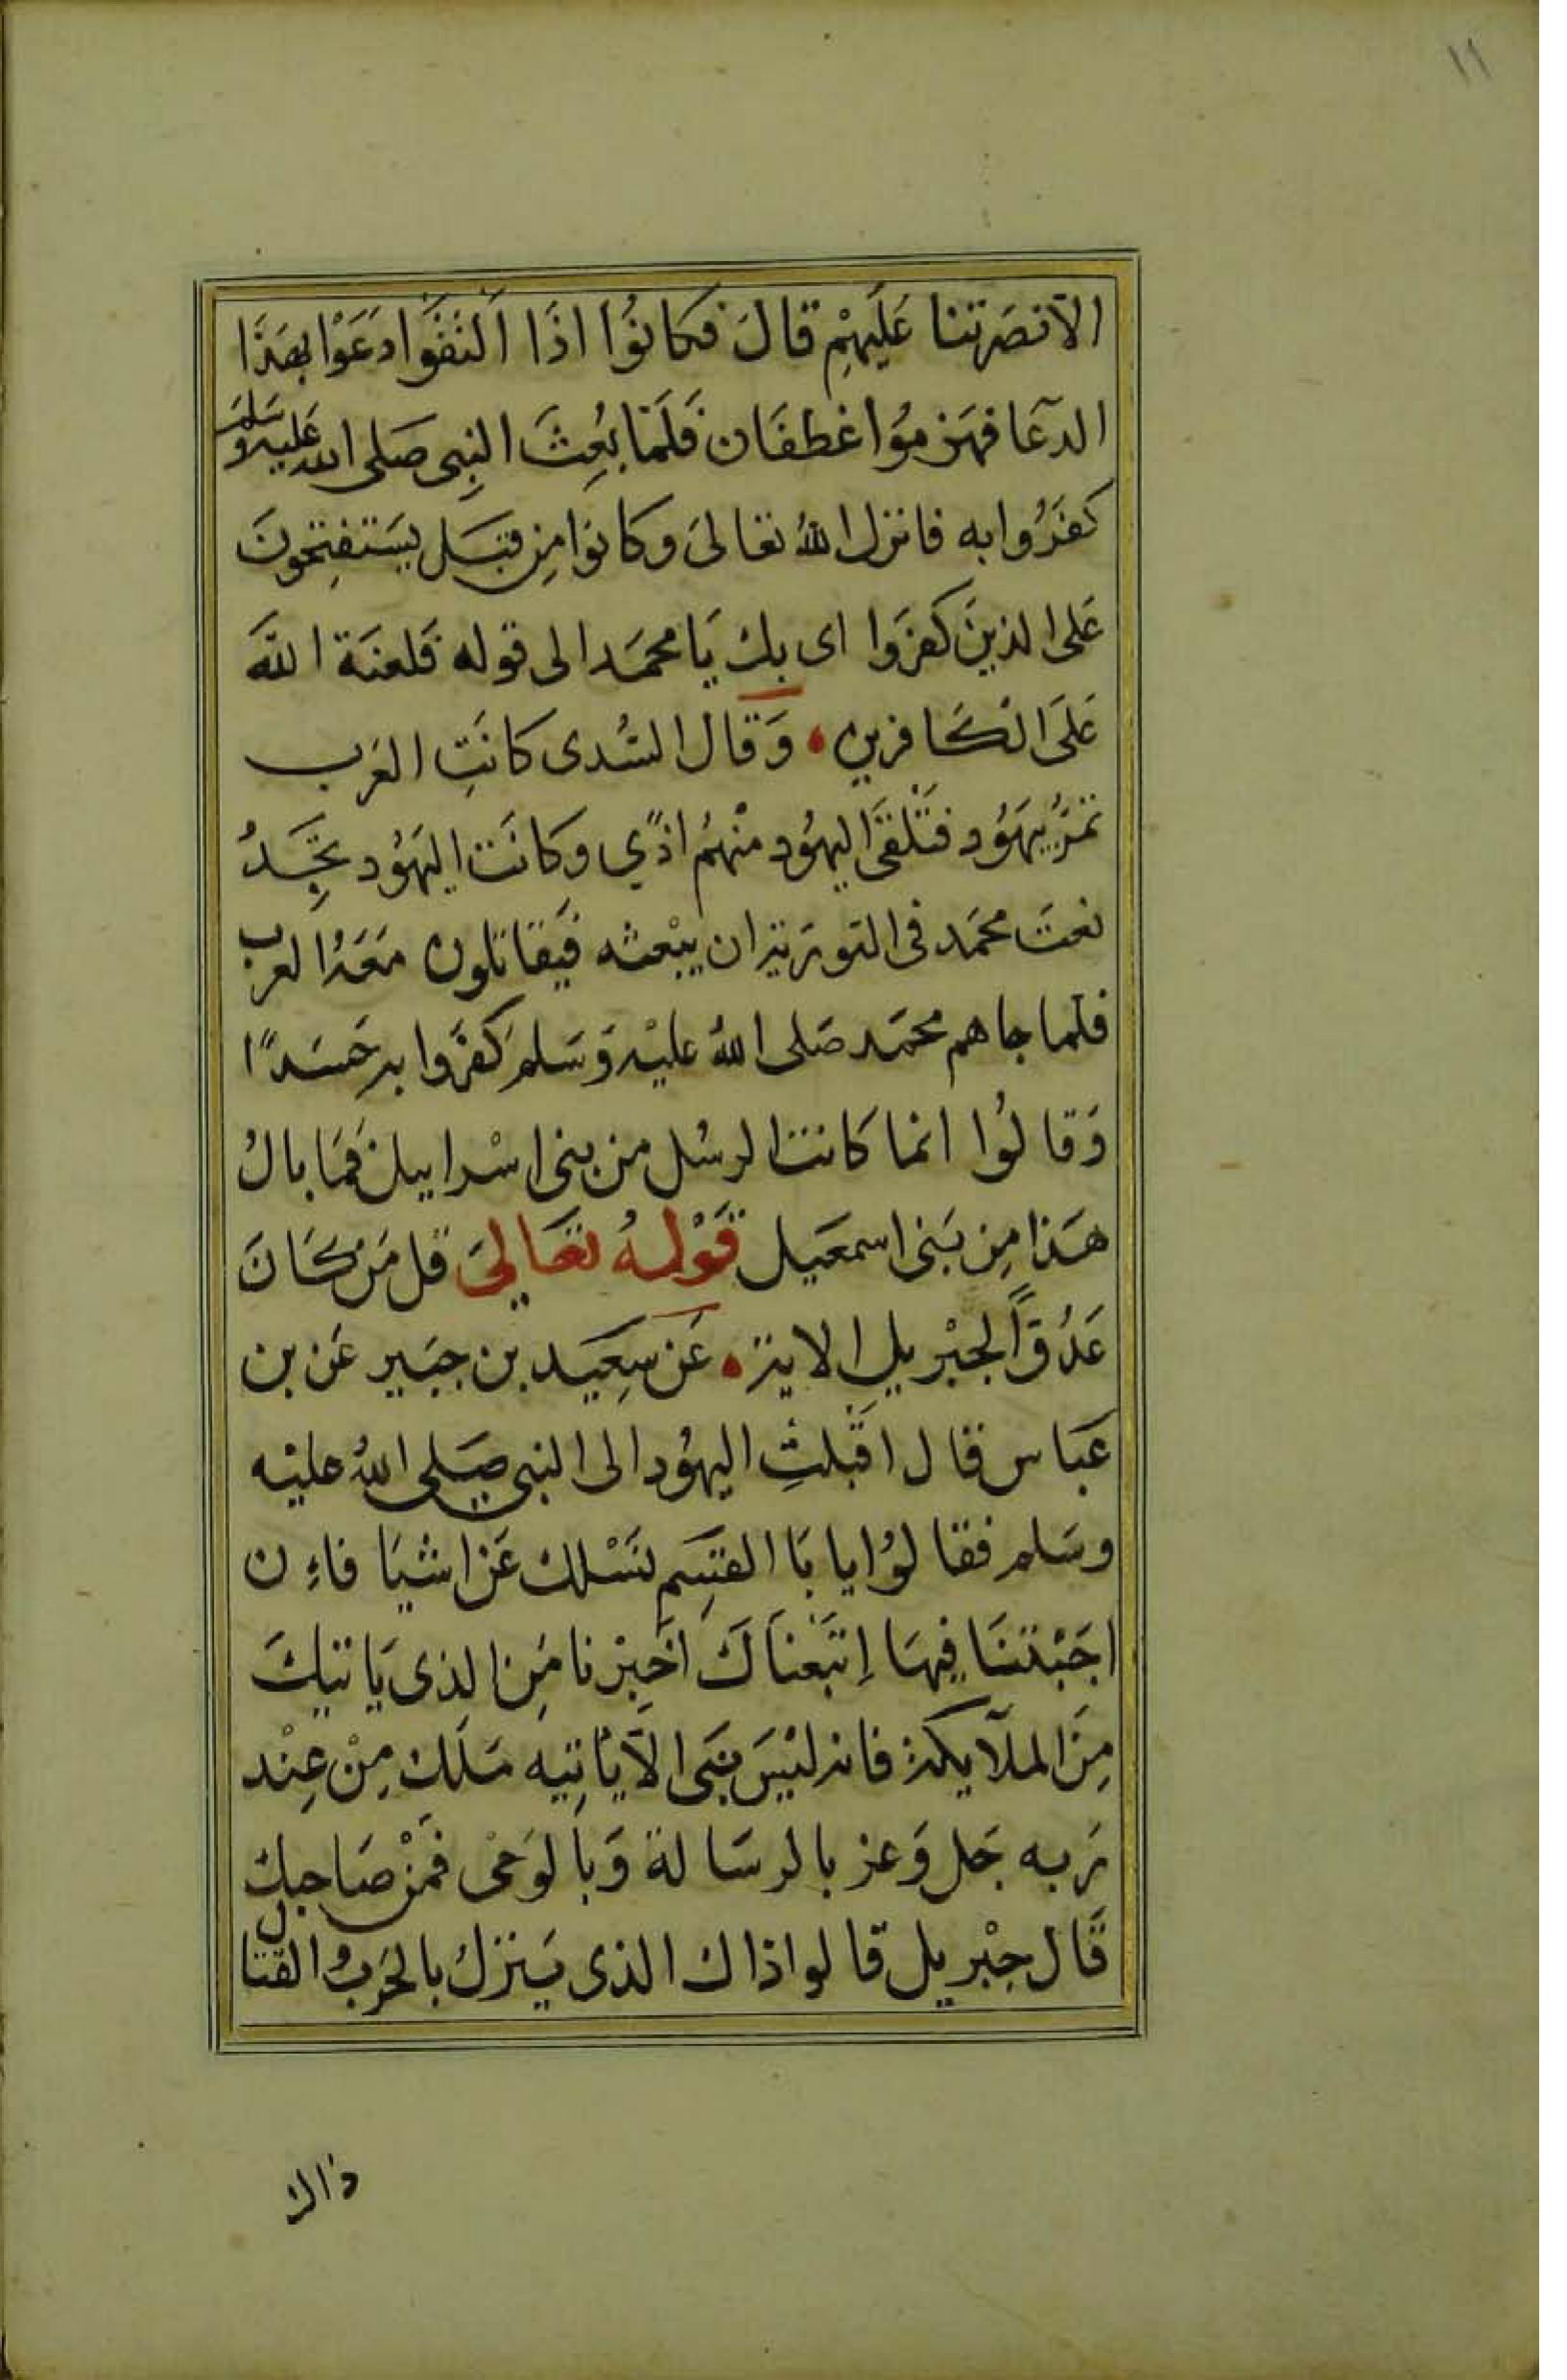 ١١
الآنصَرتنا عَلَيهِمْ قالَ فكانوُا اذَا التَقَوَا دَعَوْا بهَذَا
الدعَا فهَزمُوا غطفَان فَلَمّا بُعِثَ النبِى صَلى الله عَليه وسَلم
كفَرُوا به فانزل اللهُ تعَالىَ وكانوا مِن قبَل يَستفتِحُونَ
عَلى الذينَ كفروا اى بك يَا محمَد الى قوله فَلعنَة اللهَ
عَلىَ الكَافرين وَقال السُدى كانَتِ العَرب
تمرُّ بيَهُود فتَلْقَىَ اليهُود منْهُم اذًي وكانَت اليَهُود تجِدُ
نعتَ محمَد فى التوريَة ان يبْعثه فيَقاتلون مَعَهُ العرب
فلما جاهم محمَد صَلى اللهُ عليْه وَسَلم كفرَوا به حَسَدًا
وَقالوُا انما كانت الرسُل من بنى اسْراييل فمَا بالُ
هَذا مِن بَنى اسمعَيل قَوْلهُ تعَالىَ قل مَن كَانَ
عَدُوًّا لجبْريل الاية عَن سَعِيَد بن جبَير عَن بن
عَباس قال اقْبلتِ اليهُود الى النبى صَلى اللهُ عليْه
وسَلم فقالوُا يابَا القسِم نَسْلك عَن اشيَا فاءِن
اجَبْتنَا فِيهَا اِتبَعنَاكَ اخَبِرْنا مَن الذى يَاتيكَ
مِنَ الملآيكة فانه ليْسَ نبَى الآيَاتِيه مَلَك مِنْ عِنْد
رَبه جَل وَعز بالرسَالة وَبالوَحْى فَمنْ صَاحبك
قَال جبْريل قالوا ذاك الذى يَنزل بالحَرب والقتال
ذاك